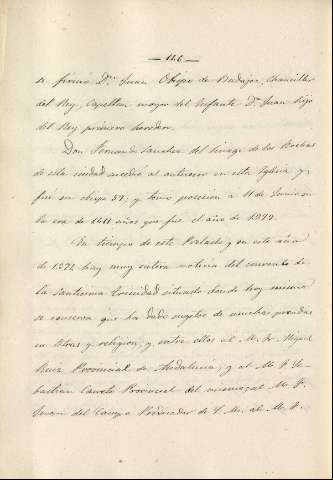 — 146 —
se firmó Dn. Juan Obispo de Badajoz, Chanciller
del Rey, Capellan mayor del Infante Dn. Juan hijo
del Rey primero heredero.
Don Fernando Sanchez del linage de los
de esta ciudad sucedió al anterior en esta Iglesia y
fué su obispo 57; y tomó posesion a 11 de Junio en
la era de 1411 años que fué el año de 1373.
En tiempo de este Prelado y en este año
de 1372 hay muy entera noticia del convento de
la Santisima Trinidad situado donde hoy mismo
se conserva que ha dado sugetos de muchas prendas
en letras y religion, y entre ellos al M. Fr. Miguel
Ruiz Provincial de Andalucia, y al M. F. Se-
bastian Provincial del mismo, al M. F.
Juan del Campo Predicador de S. M. al M. F.